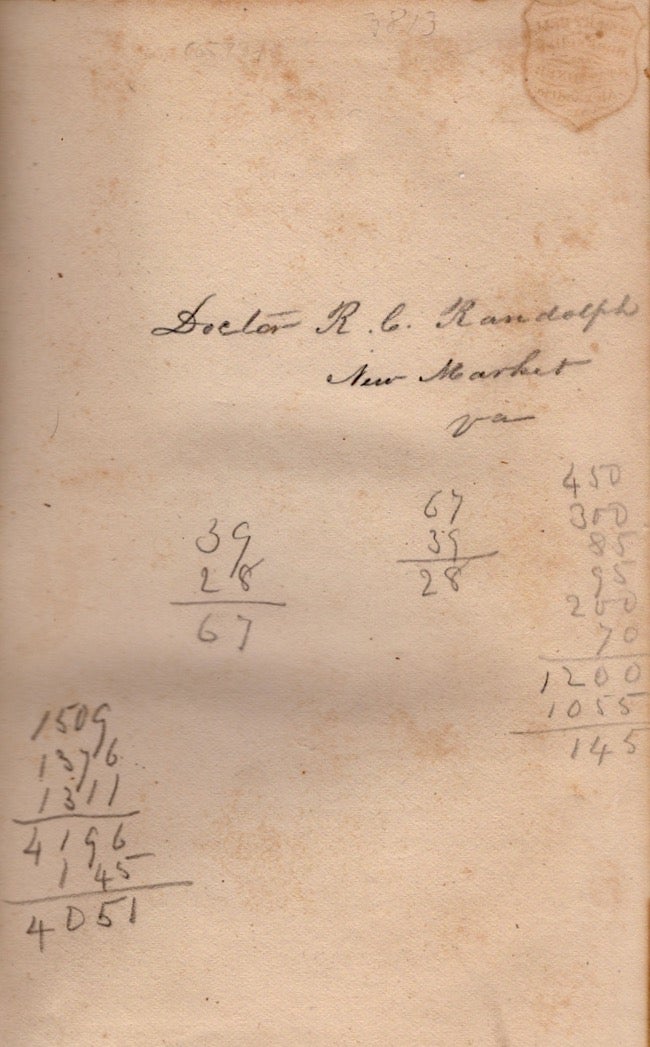 3813
Doctor R. C. Randolph
New Market
va
39
28
67
67
39
28
450
300
85
95
200
70
1200
1055
145
1509
1376
1311
4196
145
4051